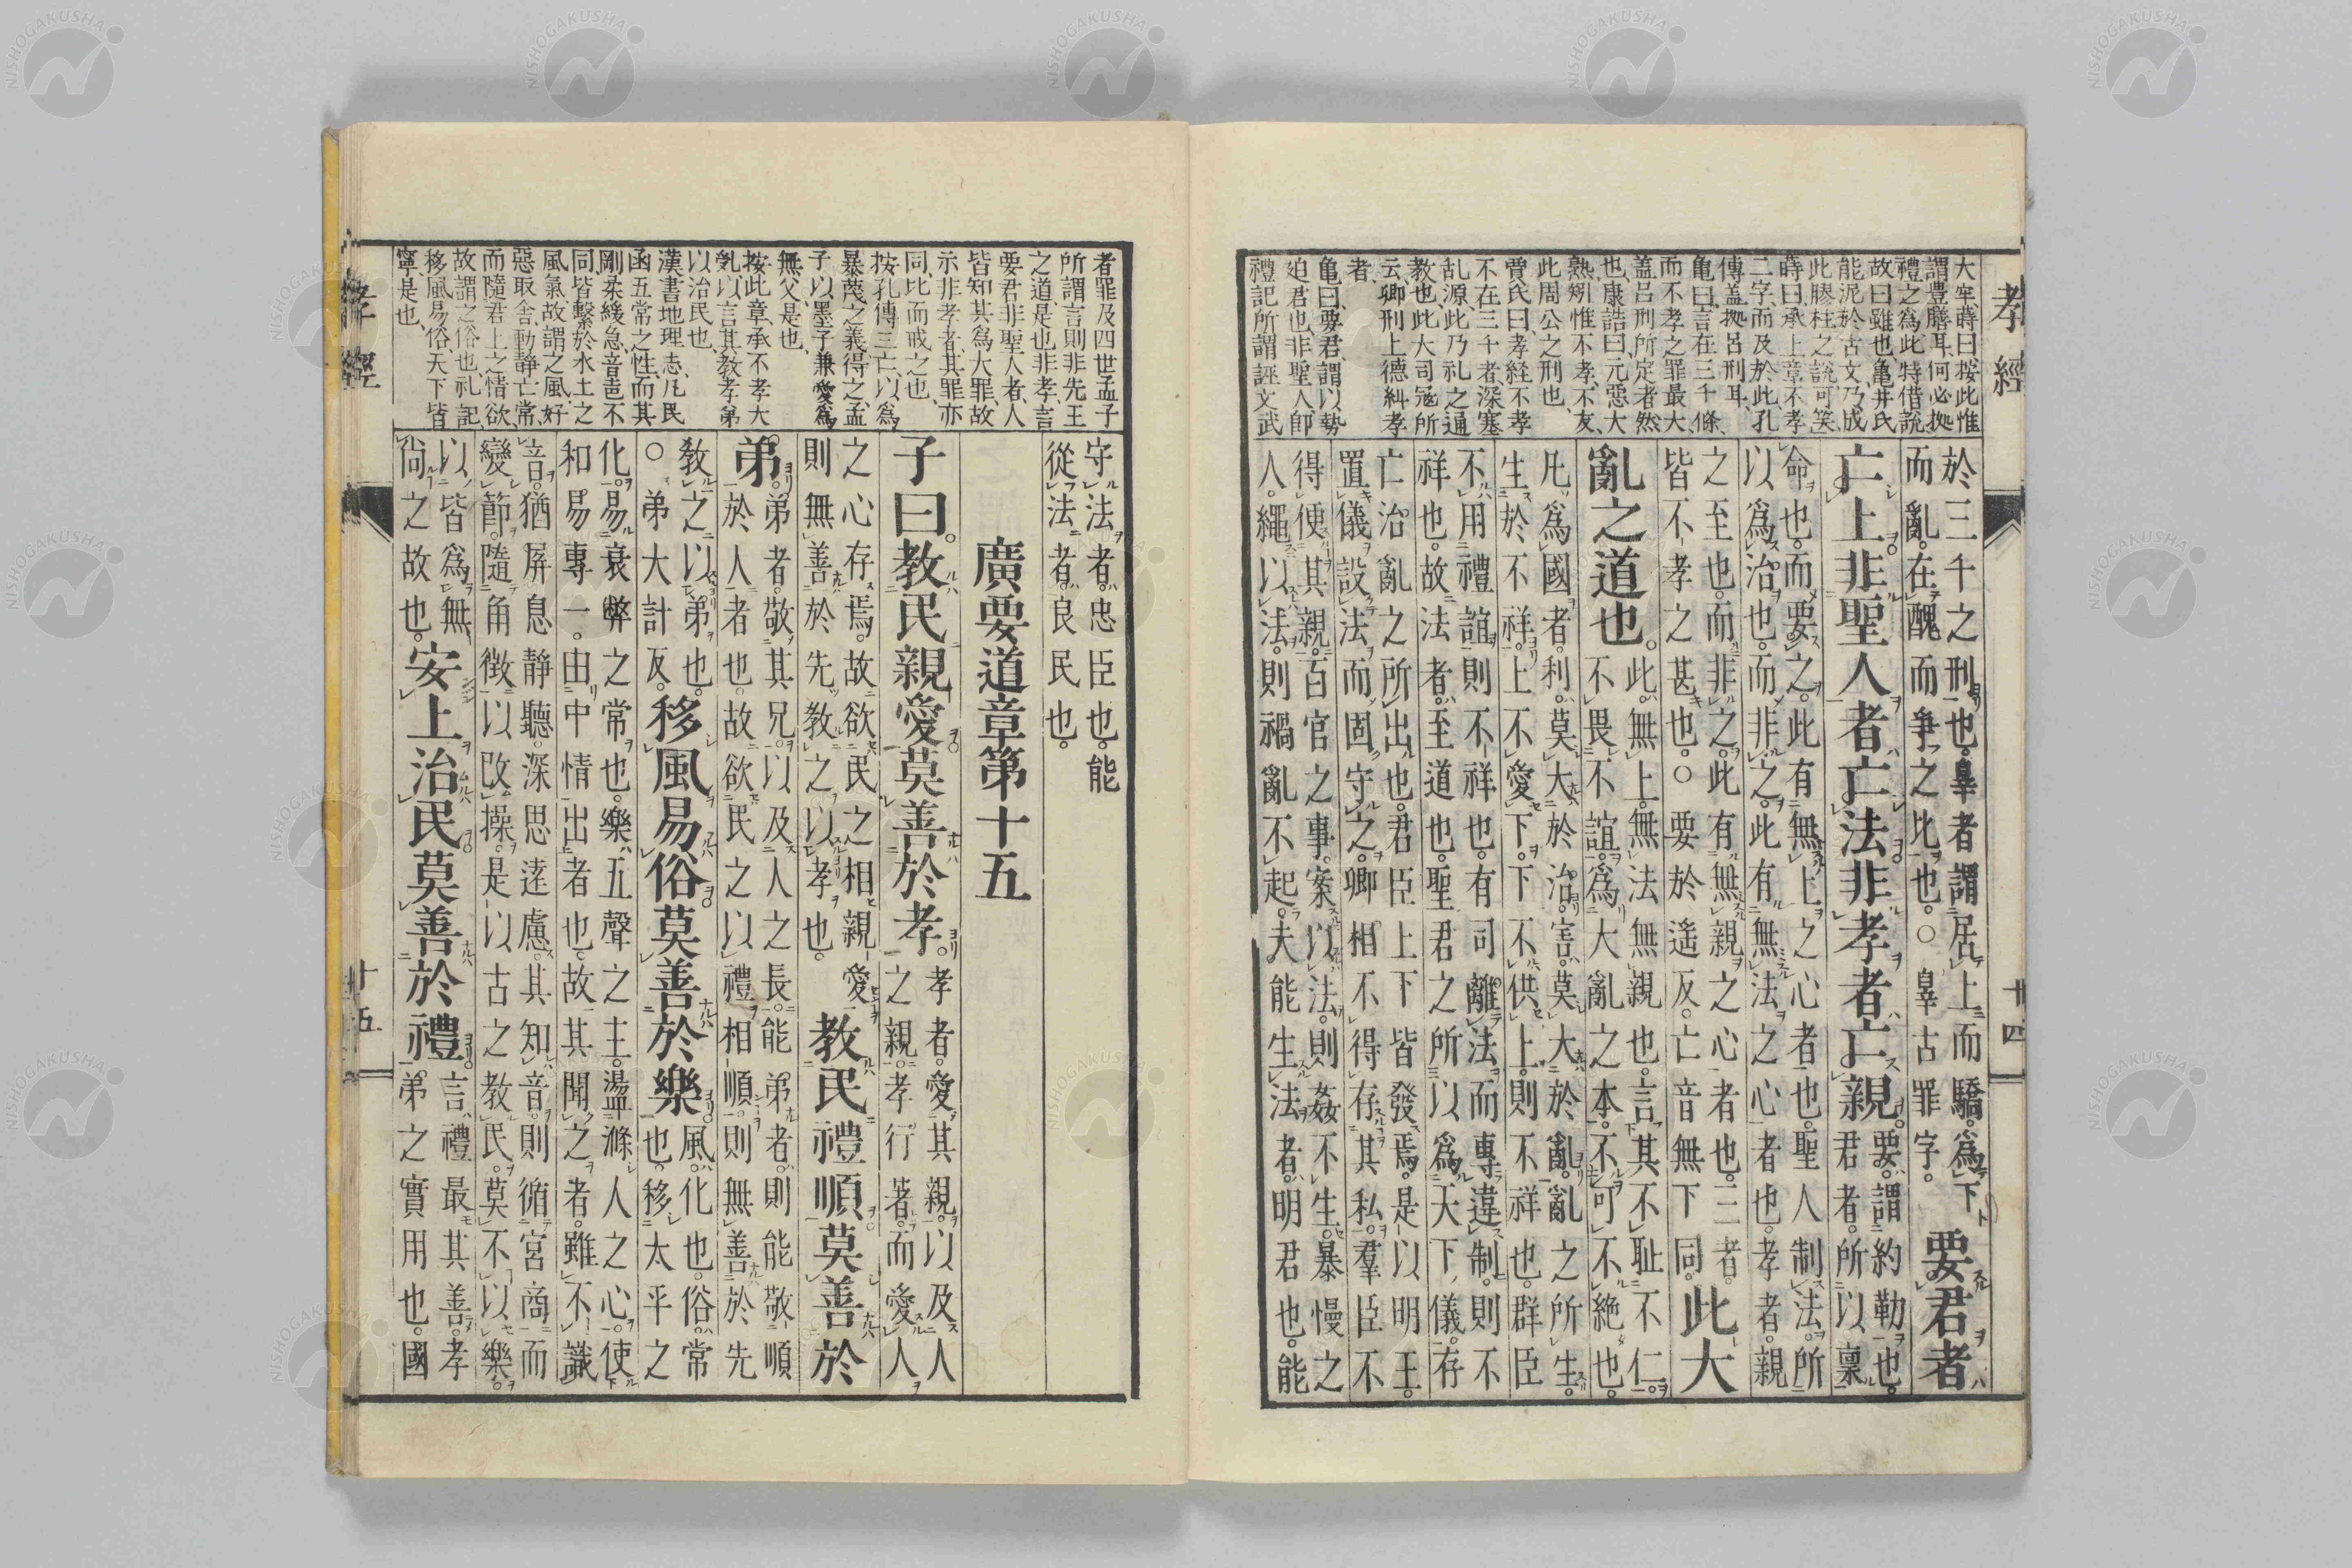 孝經
十四
大牢蒔曰按此惟
謂豊膳耳何必拠
禮之為此特借說
故曰雖也亀井氏
能泥於古文乃成
此膠柱之說可笑
蒔曰承上章不孝
二字而及於此孔
傳盖拠呂刑耳
亀曰言在三千條
而不孝之罪最大
盖呂刑所定者然
也康誥曰元惡大
熟矧惟不孝不友
此周公之刑也
賈氏曰孝経不孝
不在三千者深塞
乱源此乃礼之通
教也此大司冦所
云卿刑上德糾孝
者
亀曰要君謂以勢
廹君也非聖人即
禮記所謂誣文武
於三千之刑也。辠者謂居上而驕。爲下
而亂。在醜而爭之比也。○辠古罪字。
要君者
亡上非聖人者亡法非孝者亡親
要。謂約勒也。
君者。所以稟
命也。而要之。此有無上之心者也。聖人制法。所
以爲治也。而非之。此有無法之心者也。孝者。親
之至也。而非之。此有無親之心者也。三者。
皆不孝之甚也。○要於遙反。亡音無下同。
此大
亂之道也。
此無上無法無親也。言其不耻不仁。
不畏不誼。爲大亂之本。不可不絶也。
凡爲國者。利莫大於治。害莫大於亂。亂之所生。
生於不祥。上不愛下。下不供上。則不祥也。群臣
不用禮誼。則不祥也。有司離法而專違制。則不
祥也。故法者。至道也。聖君之所以爲天下儀。存
亡治亂之所出也。君臣上下皆發焉。是以明王。
置儀設法而固守之。卿相不得存其私。羣臣不
得便其親。百官之事。案以法。則姦不生。暴慢之
人。繩以法。則禍亂不起。夫能生法者。明君也。能
者罪及四世孟子
所謂言則非先王
之道是也非孝言
要君非聖人者人
皆知其為大罪故
示非孝者其罪亦
同比而戒之也
按孔傳三亡以為
暴蔑之義得之孟
子以墨子兼愛為
無父是也
按此章承不孝大
乱以言其教孝弟
以治民也
漢書地理志凡民
函五常之性而其
剛柔緩急音声不
同皆繫於水土之
風氣故謂之風好
惡取舎動静亡常
而隨君上之情欲
故謂之俗也礼記
移風易俗天下皆
寧是也
守法者。忠臣也。能
從法者。良民也。
廣要道章第十五
子曰。教民親愛莫善於孝。
孝者。愛其親。以及人
之親。孝行著。而愛人
之心存焉。故欲民之相親愛
則無善於先教之以孝也。
教民禮順莫善於
弟。
弟者。敬其兄。以及人之長。能弟者。則能敬順
於人者也。故欲民之以禮相順。則無善於先
教之以弟也。
○弟大計反。
移風易俗莫善於樂
風。化也。俗。常
也。移太平之
化。易衰弊之常也。樂。五聲之主。盪滌人之心。使
和易專一。由中情出者也。故其聞之者。雖不識
音。猶屏息靜聽。深思遠慮。其知音。則循宮商而
變節。隨角徵以改操。是以古之教民。莫不以樂。
以皆爲無
尚之故也。
安上治民莫善於禮
言禮最其善。孝
弟之實用也。國
孝經
十五